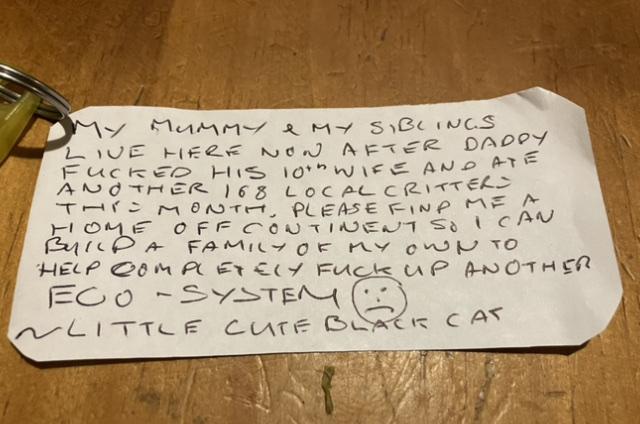 MY MUMMY & MY SIBLINGS
LIVE HERE NOW AFTER DADDY
FUCKED HIS 10th WIFE AND ATE
ANOTHER 168 LOCAL CRITTERS
THIS MONTH. PLEASE FIND ME A
HOME OFF CONTINENT SO I CAN
BUILD A FAMILY OF MY OWN TO
HELP COMPLETELY FUCK UP ANOTHER
ECO-SYSTEM
~LITTLE CUTE BLACK CAT